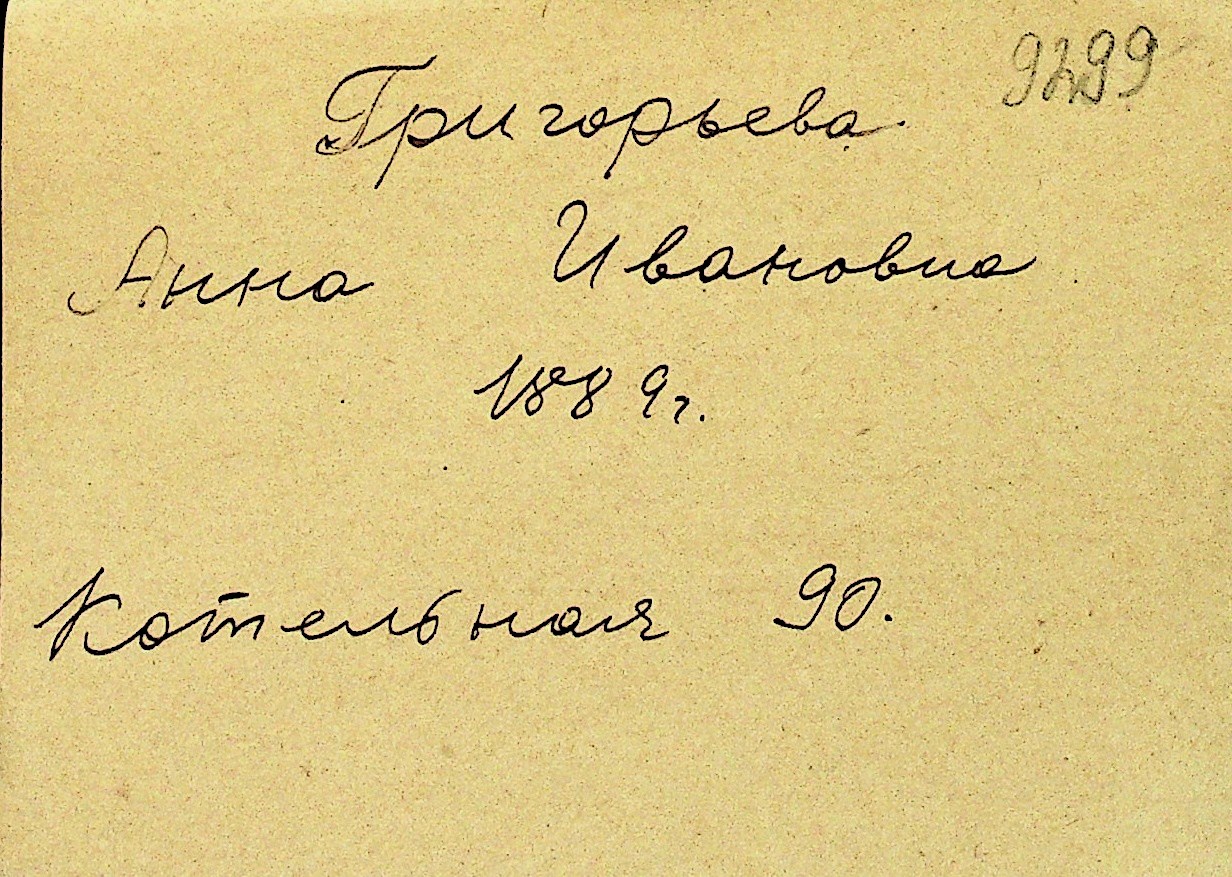 9299
Григорьева
Анна Ивановна
1889г.
Котельная 90.